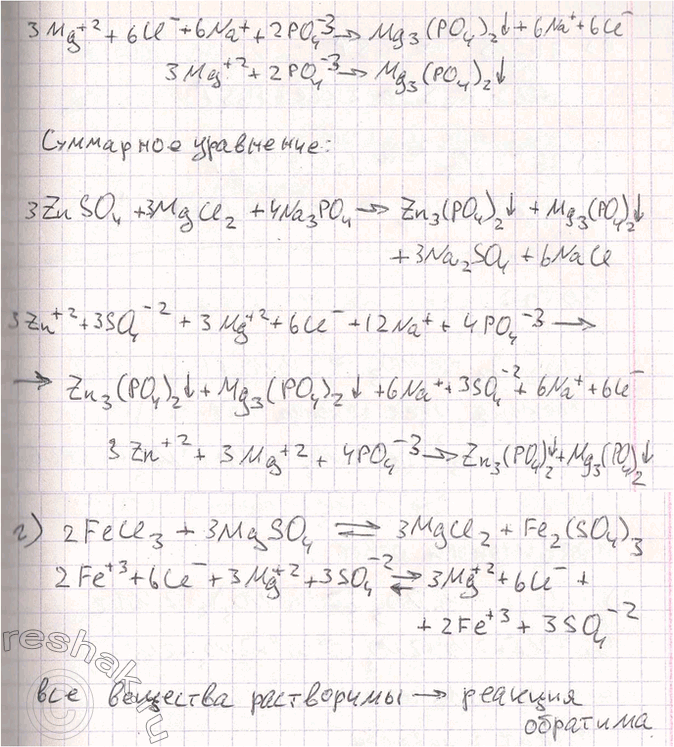 3Mg⁺² + 6Cl⁻ + 6Na⁺ + 2PO₄⁻³ → Mg₃(PO₄)₂↓ + 6Na⁺ + 6Cl⁻
3Mg⁺² + 2PO₄⁻³ → Mg₃(PO₄)₂↓
Суммарное уравнение:
3ZnSO₄ + 3MgCl₂ + 4Na₃PO₄ → Zn₃(PO₄)₂↓ + Mg₃(PO₄)₂↓
+ 3Na₂SO₄ + 6NaCl
3Zn⁺² + 3SO₄⁻² + 3Mg⁺² + 6Cl⁻ + 12Na⁺ + 4PO₄⁻³ →
→ Zn₃(PO₄)₂↓ + Mg₃(PO₄)₂↓ + 6Na⁺ + 3SO₄⁻² + 6Na⁺ + 6Cl⁻
3Zn⁺² + 3Mg⁺² + 4PO₄⁻³ → Zn₃(PO₄)₂↓ + Mg₃(PO₄)₂↓
г) 2FeCl₃ + 3MgSO₄ ⇌ 3MgCl₂ + Fe₂(SO₄)₃
2Fe⁺³ + 6Cl⁻ + 3Mg⁺² + 3SO₄⁻² ⇌ 3Mg⁺² + 6Cl⁻ +
+ 2Fe⁺³ + 3SO₄⁻²
все вещества растворимы → реакция
обратима
reshak.ru